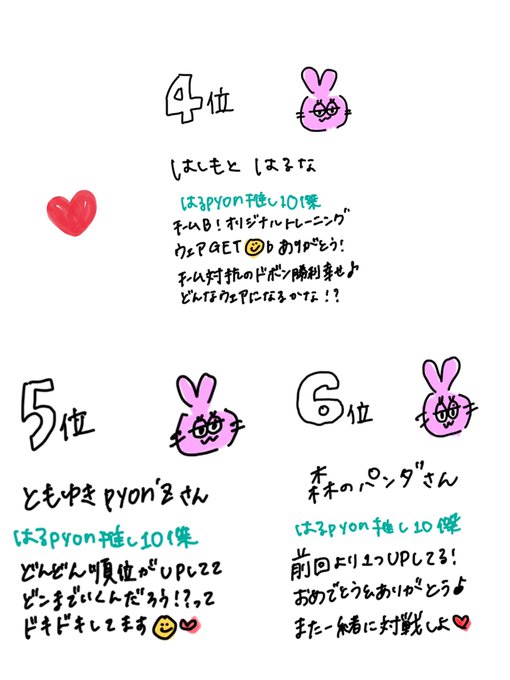 4位
はしもと はるな
はるpyon推し10傑
チームB!オリジナルトレーニング
ウェアGET🙂bありがとう!
チーム対抗のドボン勝利幸せ♪
どんなウェアになるかな!?
5位
ともゆきpyon'Zさん
はるpyon推し10傑
どんどん順位がUPしてて
どこまでいくんだろう!?って
ドキドキしてます🙂❤
6位
森のパンダさん
はるpyon推し10傑
前回より1つUPしてる!
おめでとう&ありがとう♪
また一緒に対戦しよ❤